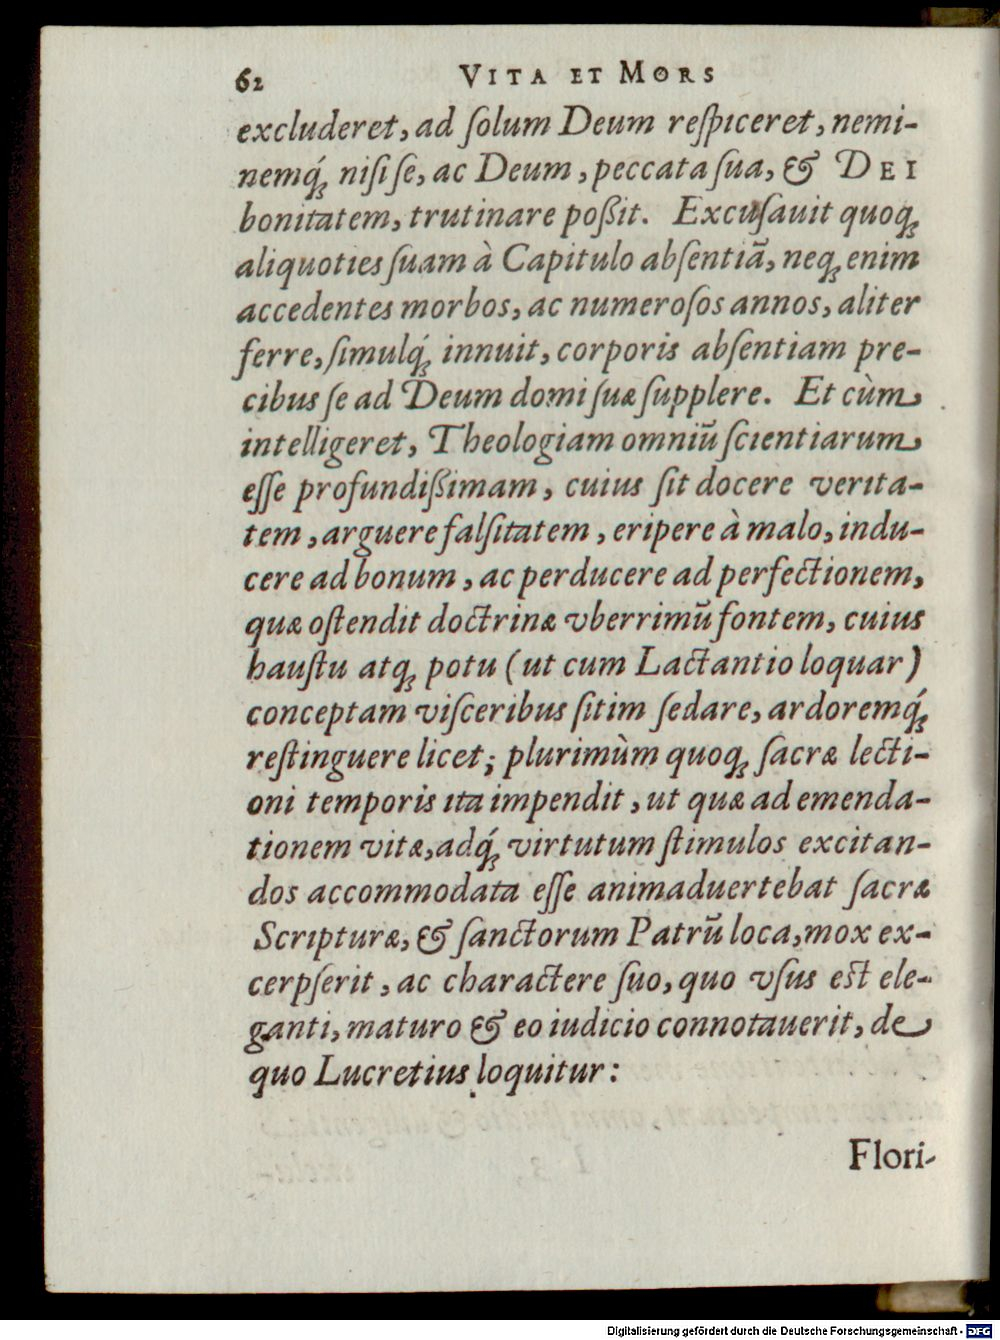 62 VITA ET MORS
excluderet, ad ſolum Deum reſpiceret, nemi-
nemq́ꝫ niſi ſe, ac Deum, peccata ſua, & DEI
bonitatem, trutinare poßit. Excuſauit quoqꝫ
aliquoties ſuam à Capitulo abſentiã, neqꝫ enim
accedentes morbos, ac numeroſos annos, aliter
ferre, ſimulq́ꝫ innuit, corporis abſentiam pre-
cibus ſe ad Deum domi ſuæ ſupplere. Et cùm
intelligeret, Theologiam omniũ ſcientiarum
eſſe profundißimam, cuius ſit docere verita-
tem, arguere falſitatem, eripere à malo, indu-
cere ad bonum, ac perducere ad perfectionem,
quæ oſtendit doctrinæ vberrimũ fontem, cuius
hauſtu atqꝫ potu (ut cum Lactantio loquar)
conceptam viſceribus ſitim ſedare, ardoremq́ꝫ
reſtinguere licet; plurimùm quoqꝫ ſacræ lecti-
oni temporis ita impendit, ut quæ ad emenda-
tionem vitæ, adq́ꝫ virtutum ſtimulos excitan-
dos accommodata eſſe animaduertebat ſacræ
Scripturæ, & ſanctorum Patrũ loca, mox ex-
cerpſerit, ac charactere ſuo, quo vſus est ele-
ganti, maturo & eo iudicio connotauerit, de
quo Lucretius loquitur:
Flori-
Digitalisierung gefördert durch die Deutsche Forschungsgemeinschaft - DFG